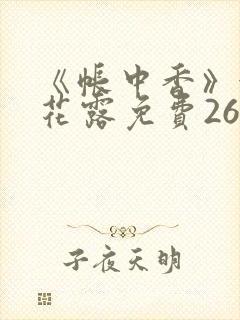 《帐中香》
花露免費26
子夜天明